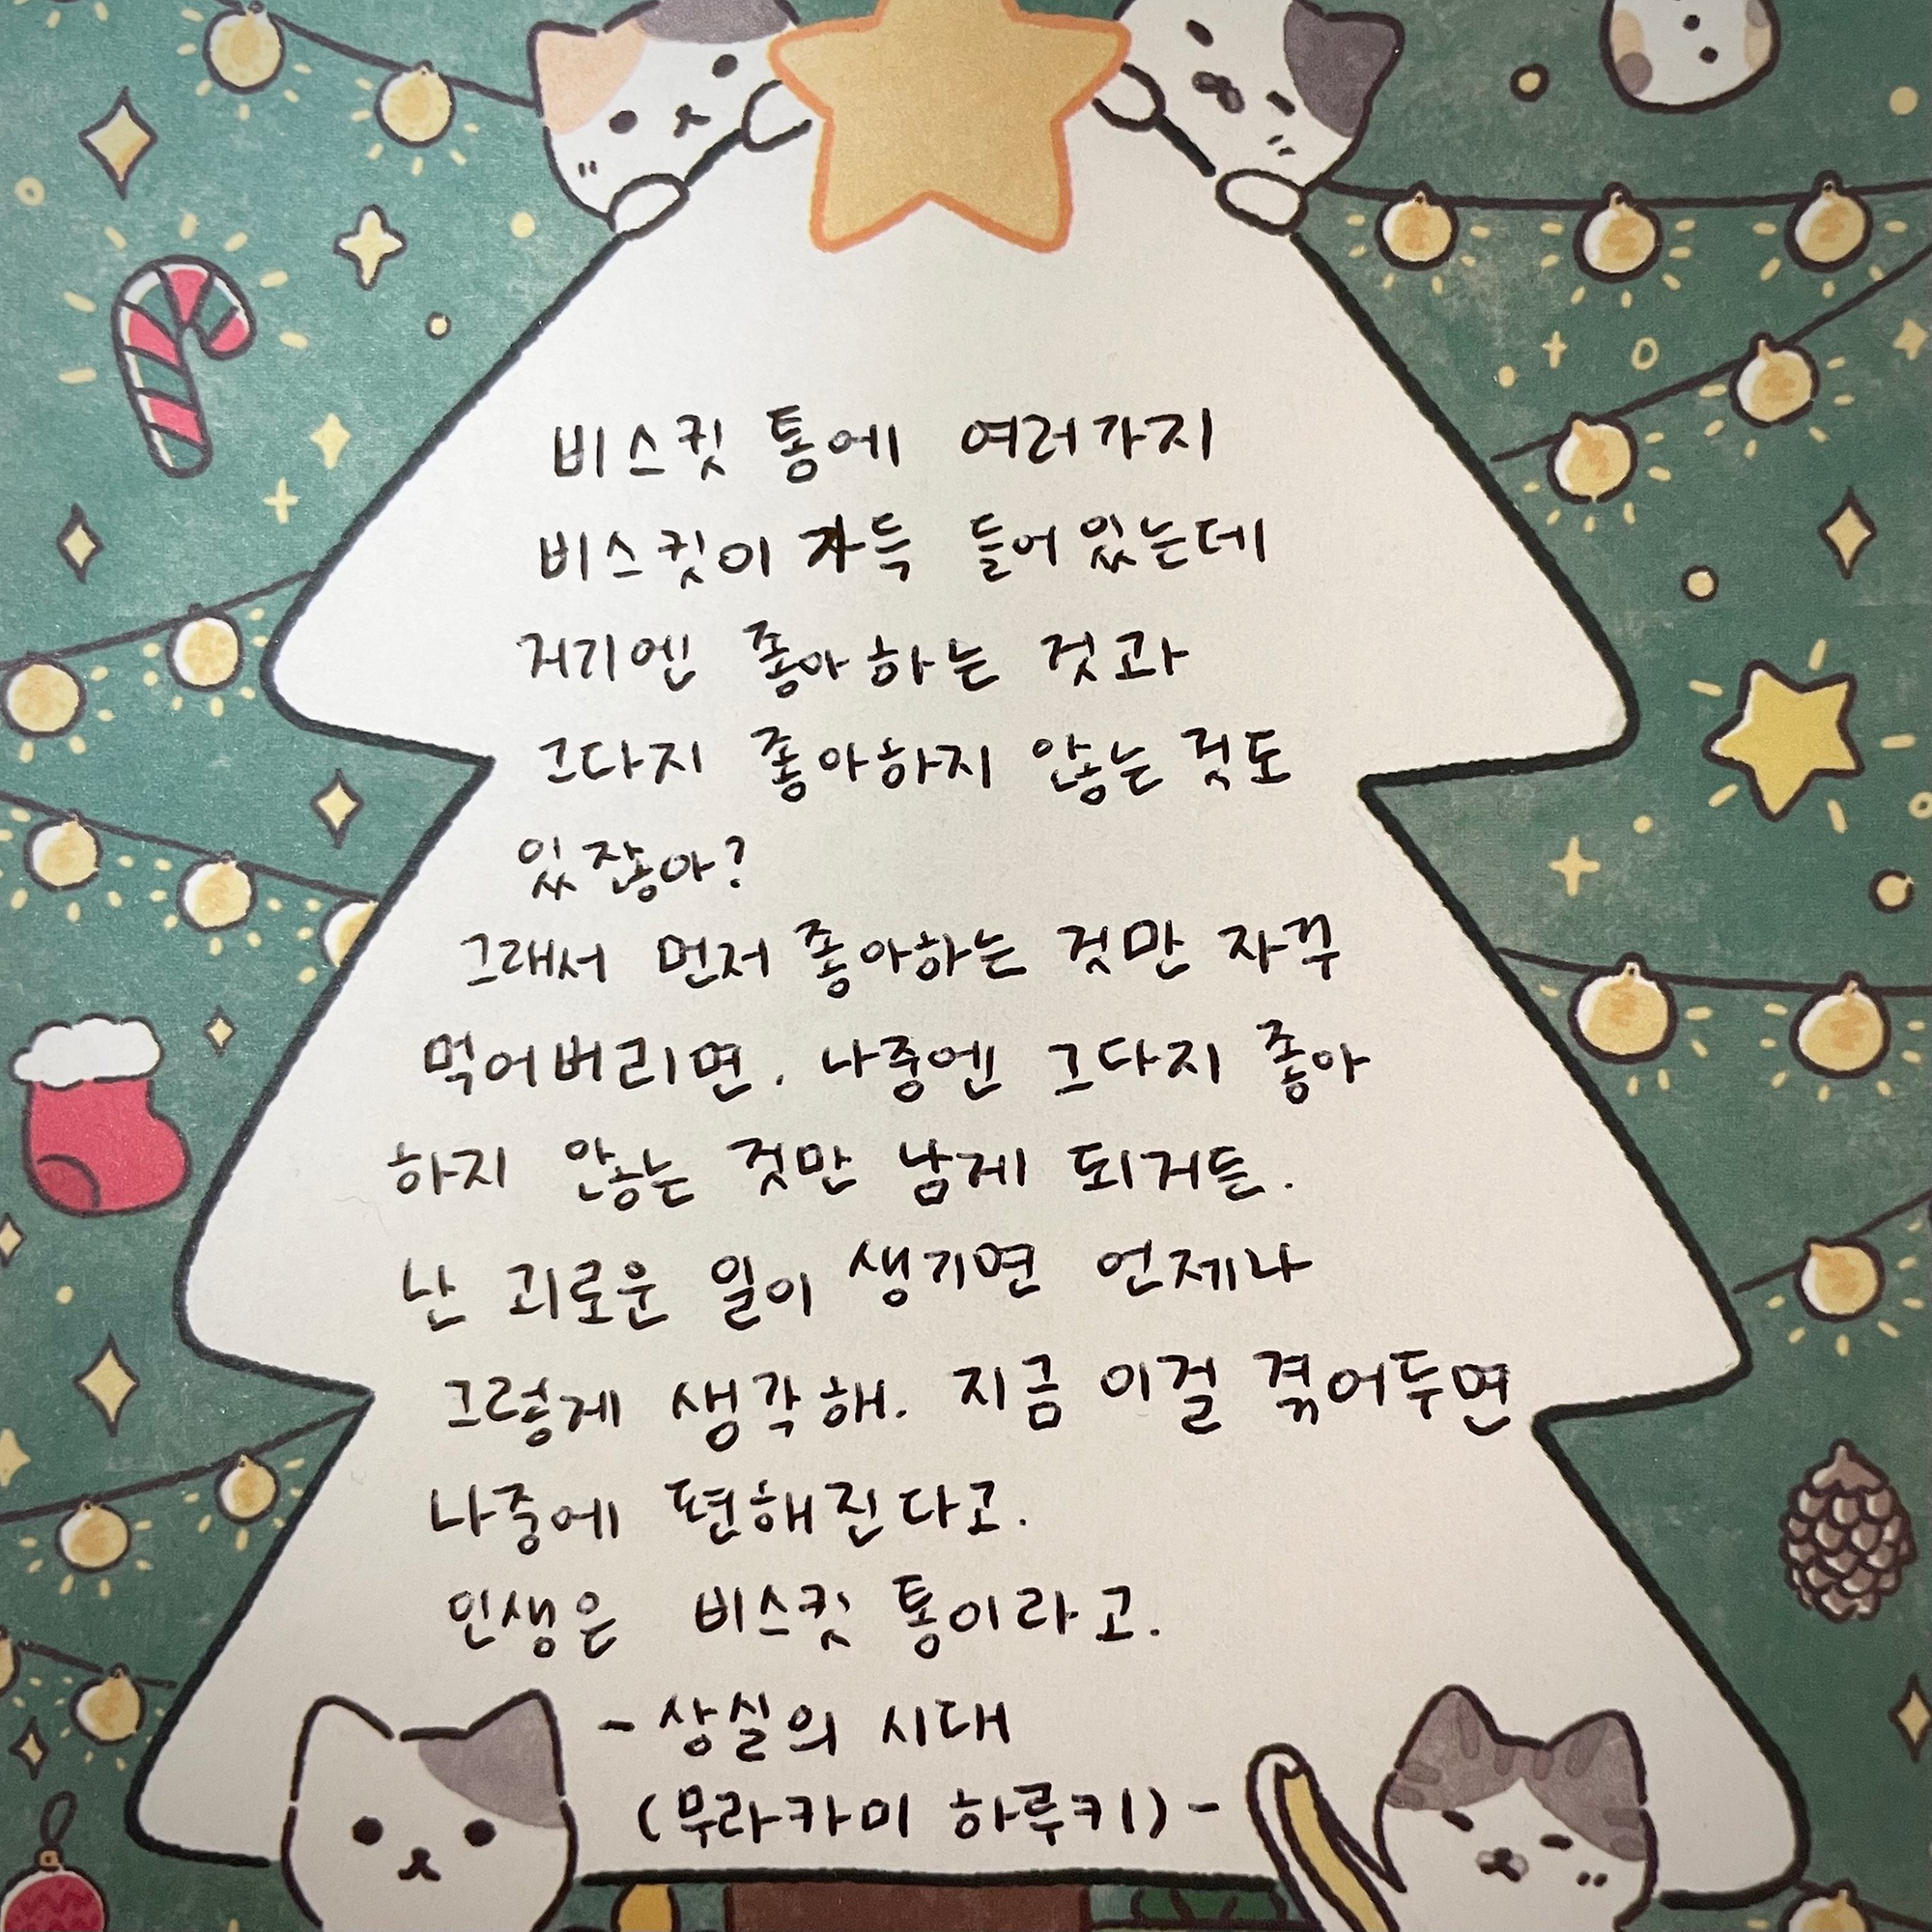 비스킷 통에 여러가지
비스킷이 가득 들어있는데
거기엔 좋아하는 것과
그다지 좋아하지 않는 것도
있잖아?
그래서 먼저 좋아하는 것만 자꾸
먹어버리면, 나중엔 그다지 좋아
하지 않는 것만 남게 되거든.
난 괴로운 일이 생기면 언제나
그렇게 생각해. 지금 이걸 겪어두면
나중에 편해진다고.
인생은 비스킷 통이라고.
- 상실의 시대
(무라카미 하루키) -